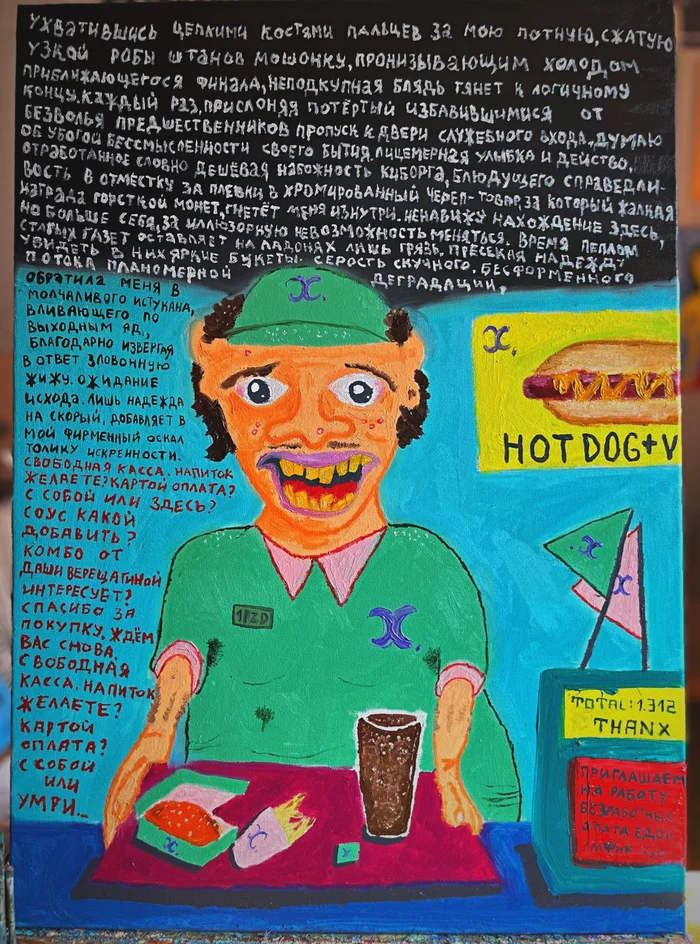 УХВАТИВШИСЬ ЦЕПКИМИ КОСТЯМИ ПАЛЬЦЕВ ЗА МОЮ ПОТНУЮ, СЖАТУЮ
УЗКОЙ РОБЫ ШТАНОВ МОШОНКУ, ПРОНИЗЫВАЮЩИМ ХОЛОДОМ
ПРИБЛИЖАЮЩЕГОСЯ ФИНАЛА, НЕПОДКУПНАЯ БЛЯДЬ ТЯНЕТ К ЛОГИЧНОМУ
КОНЦУ. КАЖДЫЙ РАЗ, ПРИСЛОНЯЯ ПОТЁРТЫЙ ИЗБАВИВШИМИСЯ ОТ
БЕЗВОЛЬЯ ПРЕДШЕСТВЕННИКОВ ПРОПУСК К ДВЕРИ СЛУЖЕБНОГО ВХОДА, ДУМАЮ
ОБ УБОГОЙ БЕССМЫСЛЕННОСТИ СВОЕГО БЫТИЯ. ЛИЦЕМЕРНАЯ УЛЫБКА И ДЕЙСТВО,
ОТРАБОТАННОЕ СЛОВНО ДЕШЁВАЯ НАБОЖНОСТЬ КИБОРГА, БЛЮДУЩЕГО СПРАВЕДЛИ-
ВОСТЬ В ОТМЕСТКУ ЗА ПЛЕВКИ В ХРОМИРОВАННЫЙ ЧЕРЕП-ТОВАР, ЗА КОТОРЫЙ ЖАЛКАЯ
НАГРАДА ГОРСТКОЙ МОНЕТ, ГНЕТЁТ МЕНЯ ИЗНУТРИ. НЕНАВИЖУ НАХОЖДЕНИЕ ЗДЕСЬ,
НО БОЛЬШЕ СЕБЯ, ЗА ИЛЛЮЗОРНУЮ НЕВОЗМОЖНОСТЬ МЕНЯТЬСЯ. ВРЕМЯ ПЕПЛОМ
СТАРЫХ ГАЗЕТ ОСТАВЛЯЕТ НА ЛАДОНЯХ ЛИШЬ ГРЯЗЬ. ПРЕССКАЯ НАДЕЖДА
УВИДЕТЬ В НИХ ЯРКИЕ БУКЕТЫ. СЕРОСТЬ СКУЧНОГО, БЕСФОРМЕННОГО
ПОТОКА ПЛАНОМЕРНОЙ ДЕГРАДАЦИИ,
ОБРАТИЛА МЕНЯ В
МОЛЧАЛИВОГО ИСТУКАНА,
ВЛИВАЮЩЕГО ПО
ВЫХОДНЫМ ЯД,
БЛАГОДАРНО ИЗВЕРГАЯ
В ОТВЕТ ЗЛОВОННУЮ
ЖИЖУ. ОЖИДАНИЕ
ИСХОДА. ЛИШЬ НАДЕЖДА
НА СКОРЫЙ, ДОБАВЛЯЕТ В
МОЙ ФИРМЕННЫЙ ОСКАЛ
ТОЛИКУ ИСКРЕННОСТИ.
СВОБОДНАЯ КАССА. НАПИТОК
ЖЕЛАЕТЕ? КАРТОЙ ОПЛАТА?
С СОБОЙ ИЛИ ЗДЕСЬ?
СОУС КАКОЙ
ДОБАВИТЬ?
КОМБО ОТ
ДАШИ ВЕРЕЩАГИНОЙ
ИНТЕРЕСУЕТ?
СПАСИБО ЗА
ПОКУПКУ. ЖДЁМ
ВАС СНОВА.
СВОБОДНАЯ
КАССА. НАПИТОК
ЖЕЛАЕТЕ?
КАРТОЙ
ОПЛАТА?
С СОБОЙ
ИЛИ
УМРИ...
HOT DOG+V
TOTAL: 1.312
THANX
ПРИГЛАШАЕМ
НА РАБОТУ
ОПЛАТА ЕДОЙ